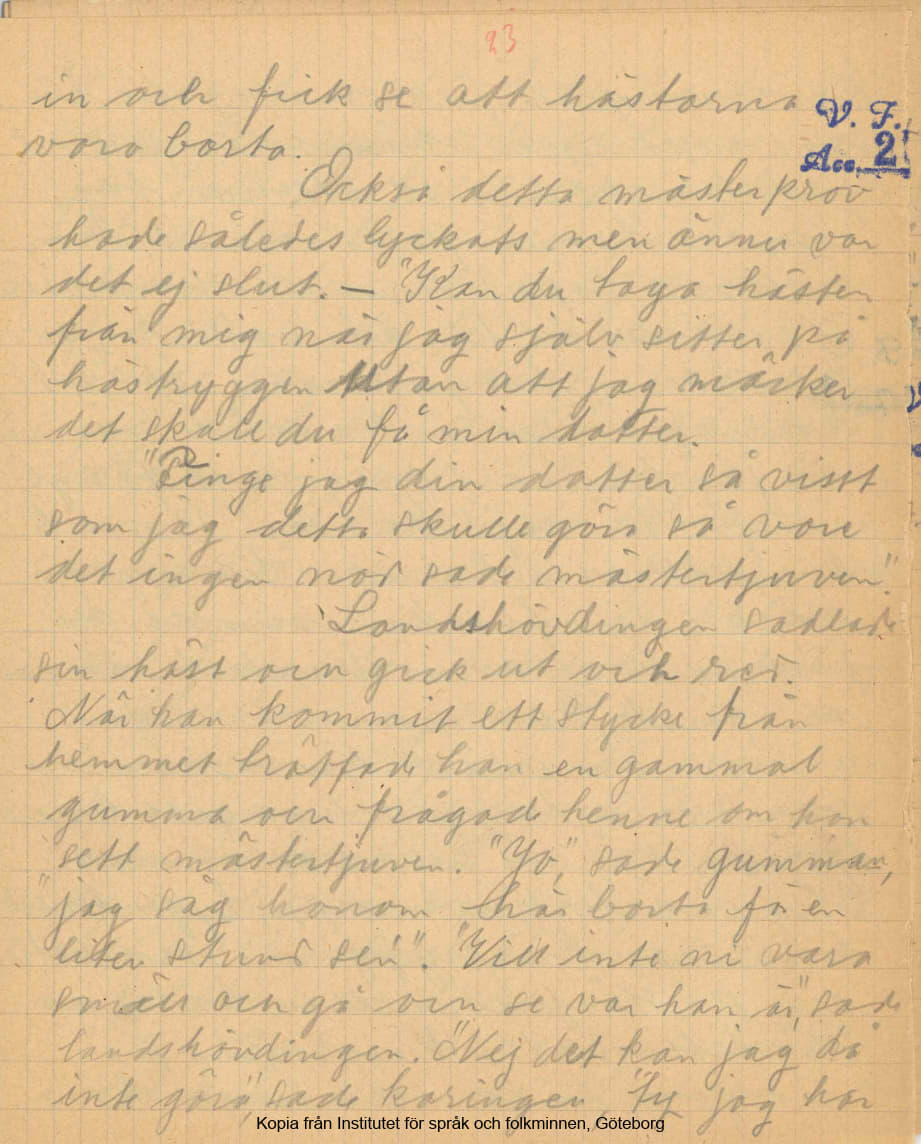 23
in och fick se att hästarna
V. F.
voro borta.
Acc. 2
Också detta mästerprov
hade således lyckats men ännu var
det ej slut. — "Kan du taga hästen
från mig när jag själv sitter på
hästryggen utan att jag märker
det skall du få min dotter.
"Finge jag din dotter så visst
som jag detta skulle göra så vore
det ingen nöd sade mästertjuven".
Landshövdingen sadlade
sin häst och gick ut och red.
När han kommit ett stycke från
hemmet träffade han en gammal
gumma och frågade henne om hon
sett mästertjuven. "Jo", sade gumman,
"jag såg honom här borta för en
liten stund sen". "Vill inte ni vara
snäll och gå och se var han är", sade
landshövdingen. "Nej det kan jag då
inte göra", sade käringen, "ty jag har
Kopia från Institutet för språk och folkminnen, Göteborg